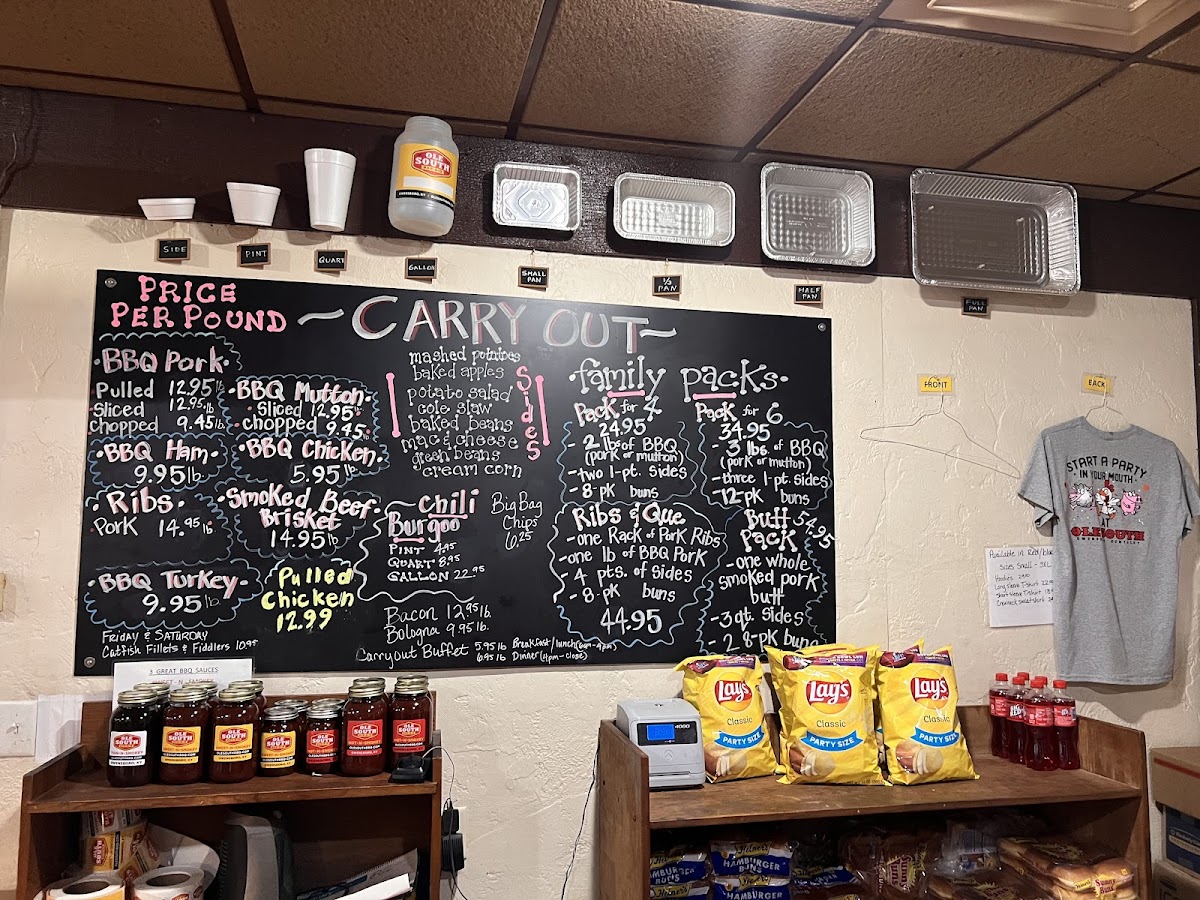 OLE
SOUTH
SIDE
PINT
QUART
GALLON
SMALL
PAN
1/3
PAN
HALF
PAN
FULL
PAN
PRICE
PER POUND
~CARRY OUT~
BBQ Pork
Pulled 12.95 lb
Sliced 12.95 lb
chopped 9.45 lb
BBQ Mutton
Sliced 12.95
chopped 9.45
BBQ Ham
9.95 lb
BBQ Chicken
5.95 lb
Ribs
Pork 14.95 lb
Smoked Beef
Brisket
14.95 lb
BBQ Turkey
9.95 lb
Pulled
Chicken
12.99
Friday & Saturday
Catfish Fillets & Fiddlers 10.95
mashed potatoes
baked apples
potato salad
cole slaw
baked beans
mac & cheese
green beans
cream corn
Sides
Chili
Burgoo
PINT 4.95
QUART 8.95
GALLON 22.95
Big Bag
Chips
6.25
Bacon 12.95 lb
Bologna 9.95 lb
Carryout Buffet
Dinner (4pm-close)
family packs
Pack for 4
24.95
2 lbs of BBQ
(pork or mutton)
-two 1-pt. sides
-8-pk buns
Pack for 6
34.95
3 lbs. of BBQ
(pork or mutton)
-three 1-pt. sides
-12-pk buns
Ribs & Que
-one Rack of Pork Ribs
-one lb of BBQ Pork
-4 pts. of Sides
-8-pk buns
44.95
Butt 54.95
Pack
-one whole
smoked pork
butt
-3 qt. sides
-2 8-pk buns
FRONT
BACK
START A PARTY
IN YOUR MOUTH
OLE SOUTH
Sizes Small - 3XL
3 GREAT BBQ SAUCES
OLE
SOUTH
OLE
SOUTH
OLE
SOUTH
OLE
SOUTH
OLE
SOUTH
OLE
SOUTH
OLE
SOUTH
Lay's
Classic
PARTY SIZE
Lay's
Classic
PARTY SIZE
Lay's
Classic
PARTY SIZE
HAMBURGER
BUNS
HAMBURGER
BUNS
HAMBURGER
BUNS